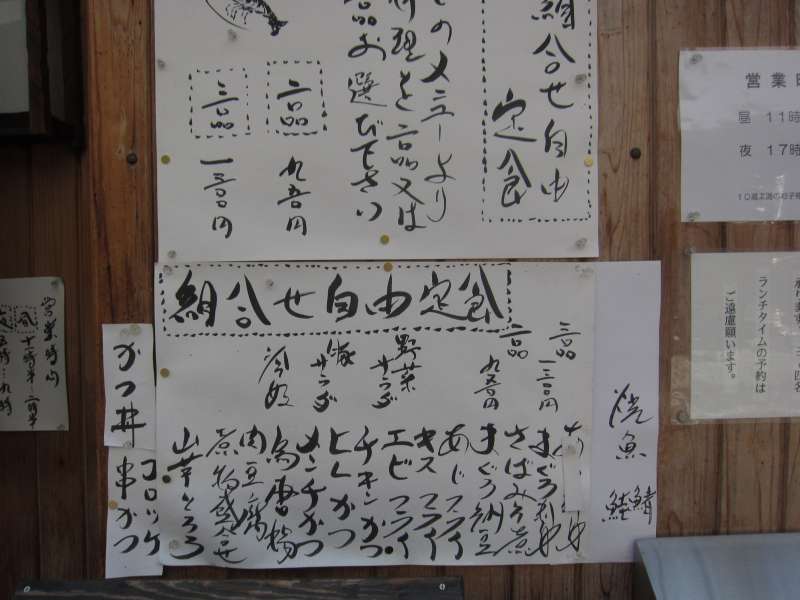 組合せ自由
定食
のメニューより
料理を二品又は
品お選び下さい
二品
九五〇円
三品
一三〇〇円
組合せ自由定食
三品
一三〇〇円
二品
九五〇円
野菜
サラダ
サラダ
冷奴
まぐろ刺身
さばみそ煮
まぐろ納豆
あじフライ
キスフライ
エビフライ
チキンかつ
ヒレかつ
メンチかつ
鳥唐揚
肉豆腐
煮物盛合せ
山芋とろろ
コロッケ
串かつ
かつ丼
焼魚
鯖
鮭
営業時間
営業
昼 11時
夜 17時
ランチタイムの予約は
ご遠慮願います。